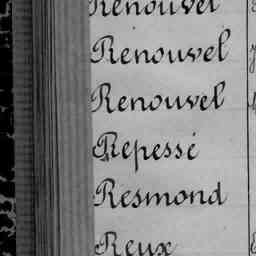 Renouvel
Renouvel
Renouvel
Repessé
Resmond
Reux